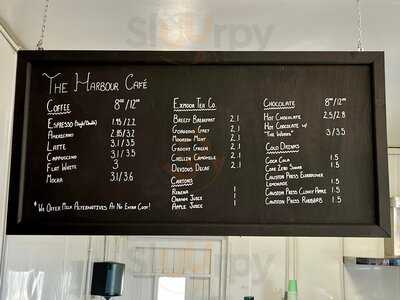 The Harbour Café
Coffee 8oz/12oz
Espresso (Single/Double) 1.95/2.2
Americano 2.85/3.2
Latte 3.1/3.5
Cappuccino 3.1/3.5
Flat White 3
Mocha 3.1/3.6
*We Offer Milk Alternatives At No Extra Cost!
Exmoor Tea Co.
Breezy Breakfast 2.1
Gorgeous Grey 2.1
Moorish Mint 2.1
Groovy Green 2.1
Chillin Camomile 2.1
Devious Decaf 2.1
Cartons
Ribena 1
Orange Juice 1
Apple Juice 1
Chocolate 8oz/12oz
Hot Chocolate 2.5/2.8
Hot Chocolate w/
"The Works" 3/3.5
Cold Drinks
Coca Cola 1.5
Coke Zero Sugar 1.5
Cawston Press Elderflower
Lemonade 1.5
Cawston Press Cloudy Apple 1.5
Cawston Press Rhubarb 1.5